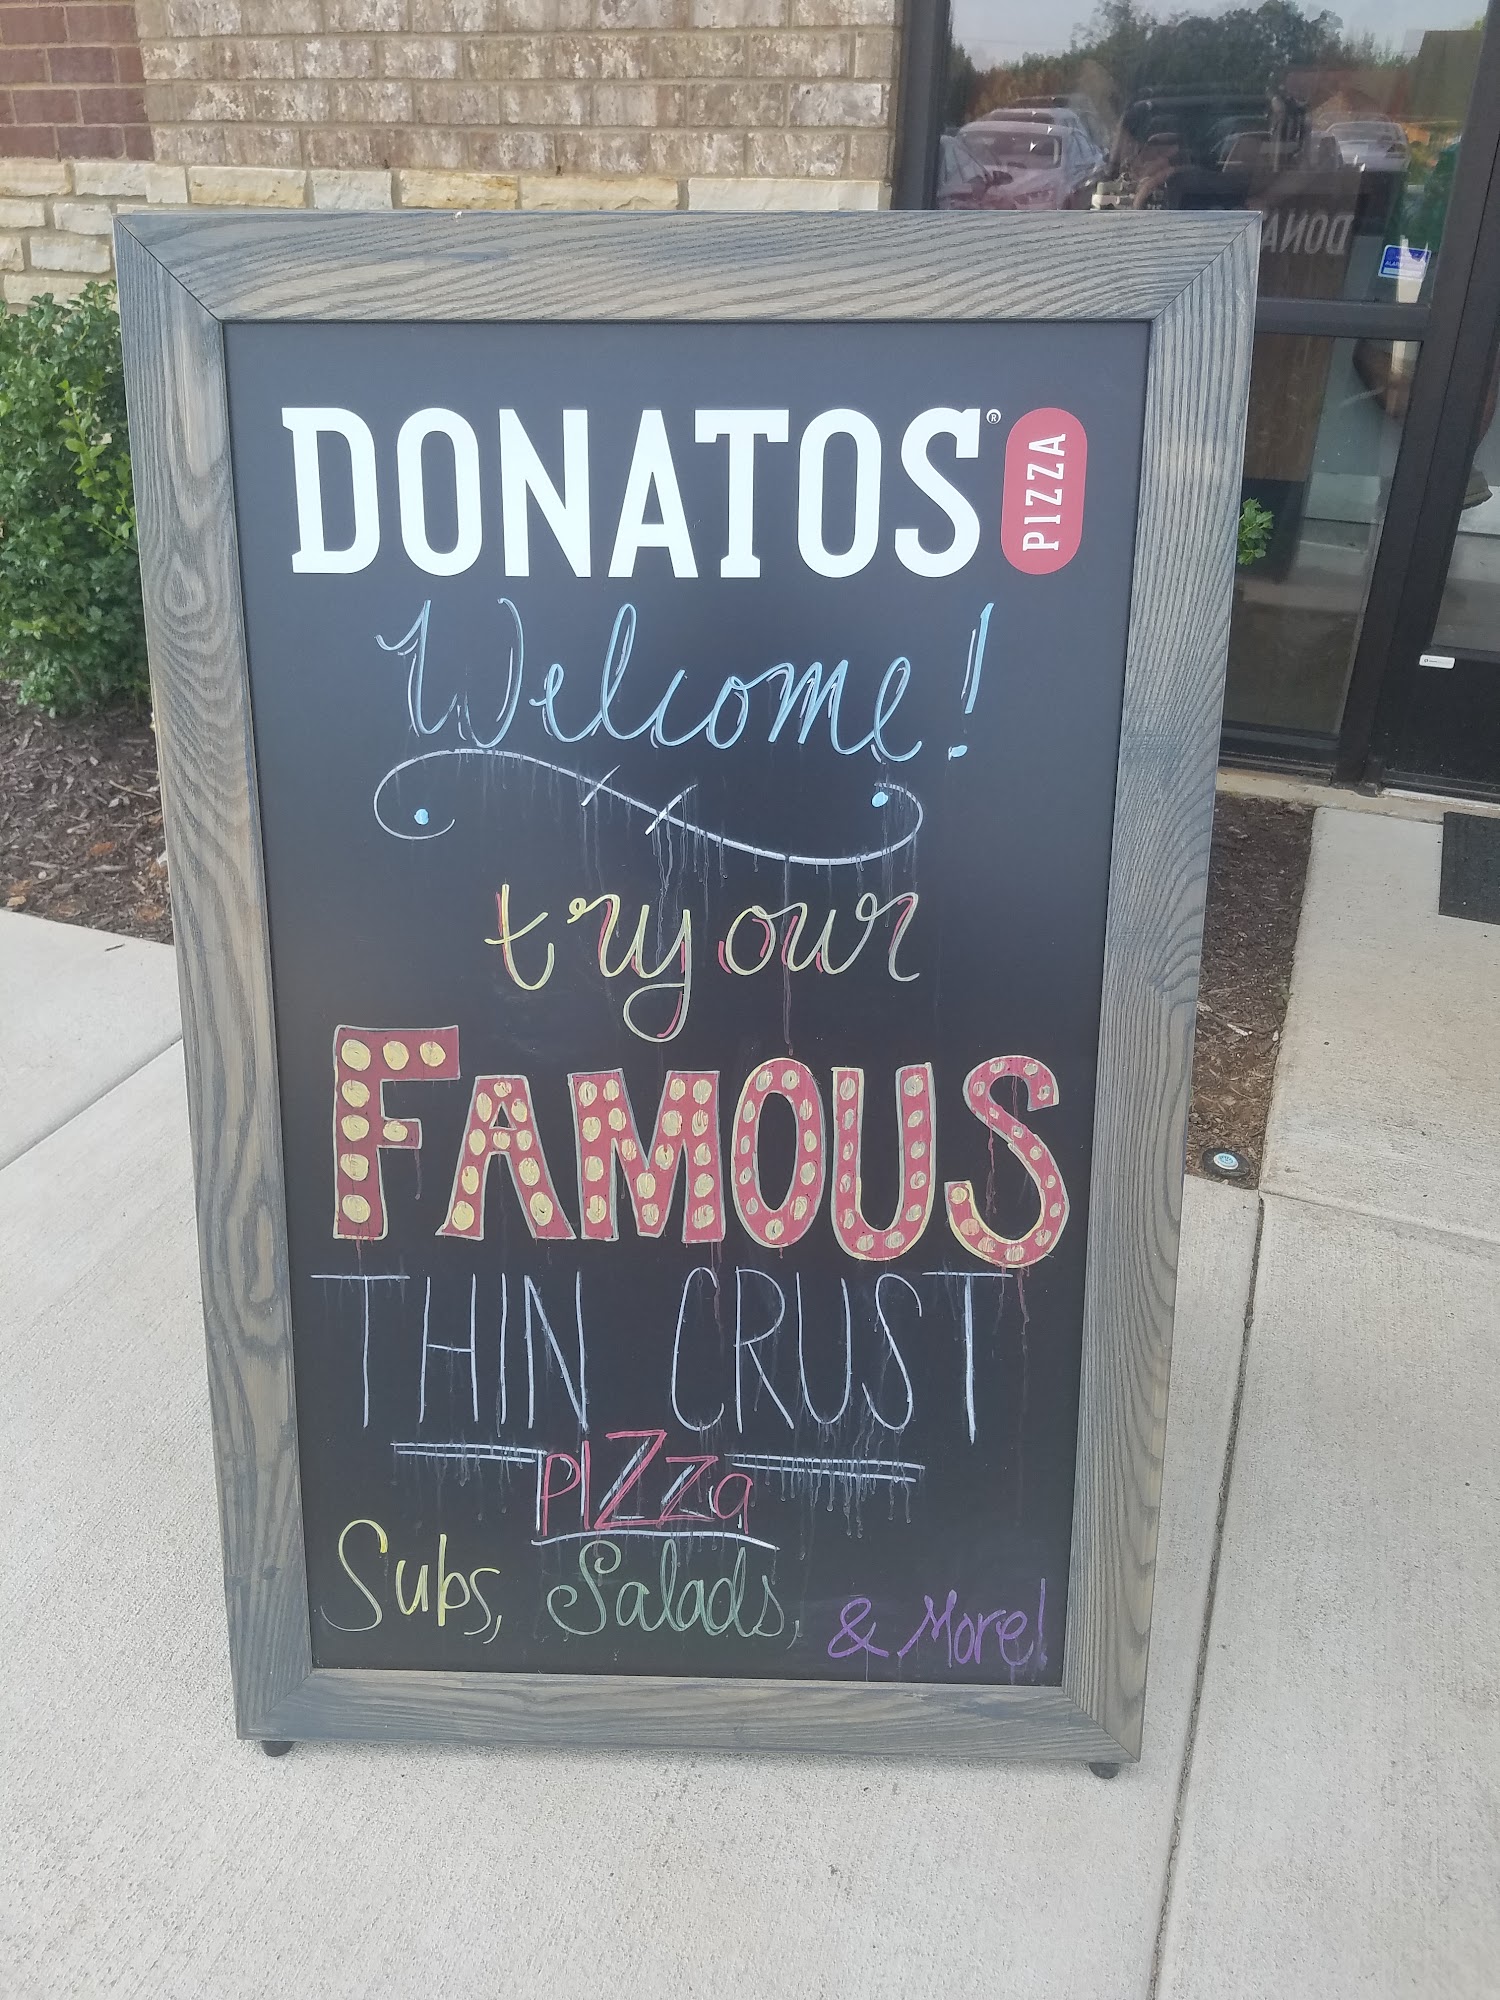 DONATOS® PIZZA
Welcome!
try our
FAMOUS
THIN CRUST
PIZZa
Subs, Salads, & More!
DONA